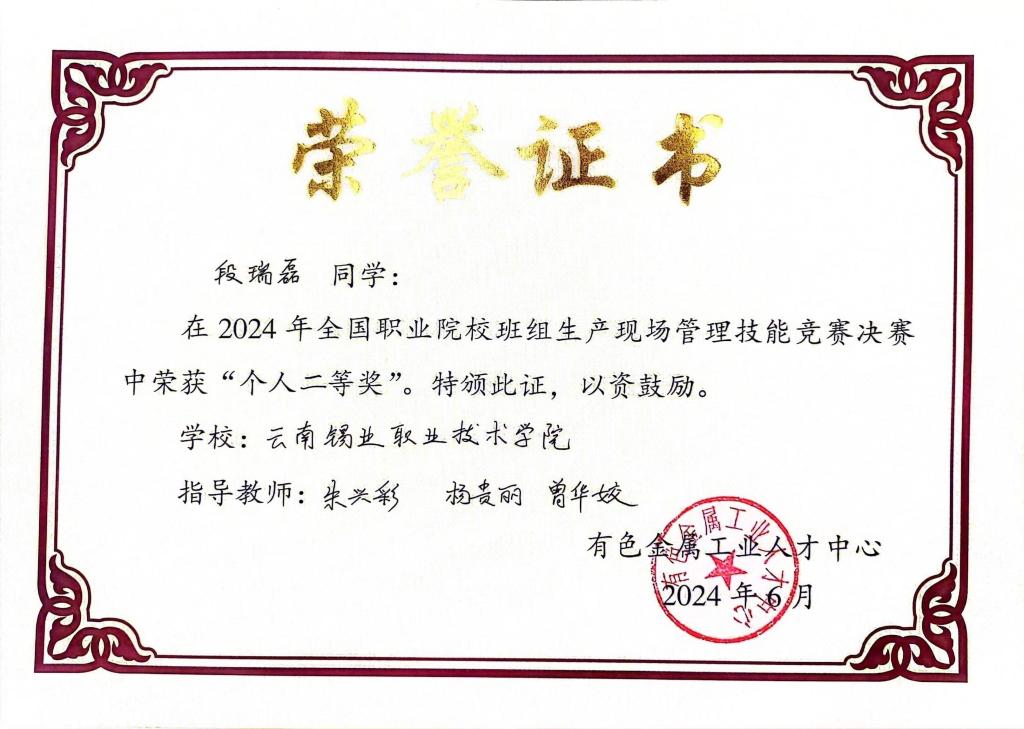 荣誉证书
段瑞磊 同学：
在 2024 年全国职业院校班组生产现场管理技能竞赛决赛
中荣获“个人二等奖”。特颁此证，以资鼓励。
学校：云南锡业职业技术学院
指导教师：朱兴彩 杨贵丽 曾华姣
有色金属工业人才中心
2024 年 6 月
有色金属工业人才中心